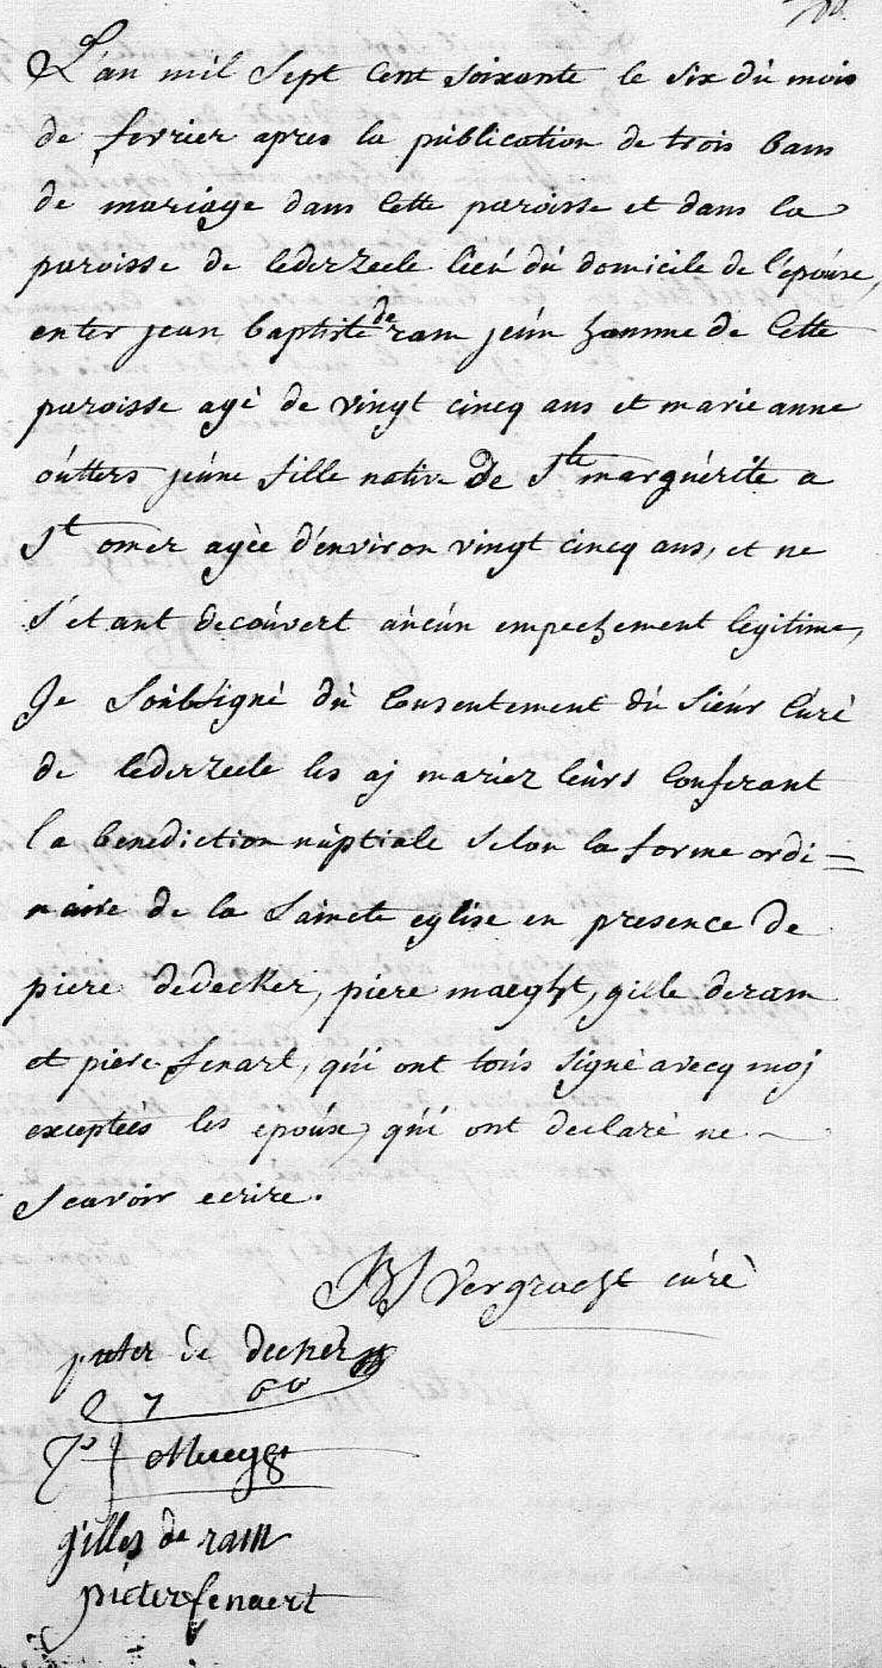 L'an mil sept cent soixante le six du mois
de fevrier apres la publication de trois bans
de mariage dans cette paroisse et dans la
paroisse de lederzeele lieu du domicile de l'épouse,
enter jean baptiste de ram jeun homme de cette
paroisse agé de vingt cincq ans et marie anne
outters jeune fille native de Ste marguerite a
St omer agèe d'environ vingt cincq ans, et ne
s'etant decouvert aucun empechement legitime,
Je Soubsigné du consentement du sieur Curé
de lederzeele les aj mariez leurs conferant
la benediction nuptiale selon la forme ordi=
naire de la Saincte eglise en presence de
piere dedecker, piere maeght, gille deram
et piere fenart, qui ont tous signé avecq moj
exceptées les epoux, qui ont declaré ne
scavoir ecrire.
Vergracht curé
pieter de decker
17 60
P Maeght
gilles de ram
pieter fenaert